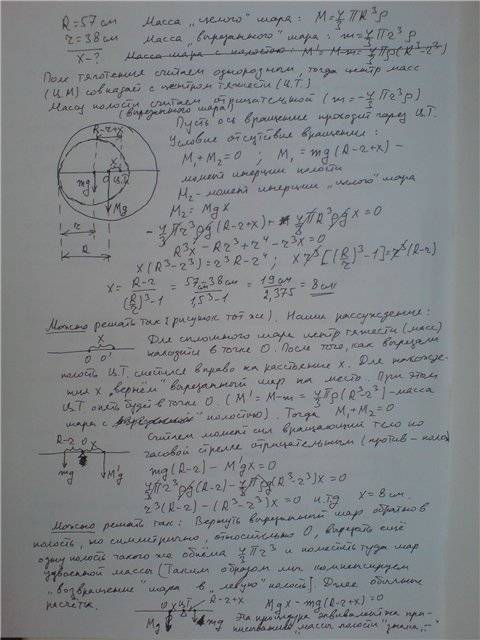 R=57см Масса „целого" шара: M=4/3 πR³ρ
r=38см Масса „вырезанного" шара: m=4/3 πr³ρ
x-? Масса шара с полостью: M'=M-m=4/3 πρ(R³-r³)
Поле тяготения считаем однородным, тогда центр масс
(Ц.М) совпадает с центром тяжести (Ц.Т.)
Массу полости считаем отрицательной (m=-4/3 πr³ρ)
(вырезанного шара)
Пусть ось вращения проходит через Ц.Т.
R-r+x
Условие отсутствие вращения:
M₁+M₂=0 ; M₁=mg(R-r+x) -
x
O Ц.Т.
момент инерции полости
mg
M₂- момент инерции „целого" шара
Mg
M₂=Mgx
r
-4/3 πr³ρg(R-r+x)+4/3 πR³ρgx=0
R
R³x-Rr³+r⁴-r³x=0
x(R³-r³)=r³R-r⁴; x r³[(R/r)³-1]=r³(R-r)
x=(R-r)/((R/r)³-1)=(57-38см)/(1,5³-1)=19см/2,375=8см
Можно решать так (рисунок тот же). Наши рассуждение:
x
Для сплошного шара центр тяжести (масс)
O O'
находится в точке O. После того, как вырезали
полость Ц.Т. сместился вправо на расстояние x. Для нахожде-
ния x „вернём" вырезанный шар на место. При этом
Ц.Т. опять будет в точке O. (M'=M-m=4/3 πρ(R³-r³)-масса
шара с полостью). Тогда M₁+M₂=0
R-r O x
Считаем момент сил вращающий тело по
mg M'g
часовой стрелке отрицательным (против - полож)
mg(R-r)-M'gx=0
4/3 πr³ρg(R-r)-4/3 πρg(R³-r³)x=0
r³(R-r)-(R³-r³)x=0 и.т.д x=8см.
Можно решать так: Вернуть вырезанный шар обратно в
полость, но симметрично, относительно O, вырезать ещё
одну полость такого же объёма 4/3 πr³ и поместить туда шар
удвоенной массы [Таким образом мы компенсируем
„возвращение" шара в „левую" полость]. Далее обычные
расчёты.
O Ц.Т R-r+x
Mgx-mg(R-r+x)=0
Mg mg
Эта процедура эквивалентна при-
писыванию „массы полости" знака „-"